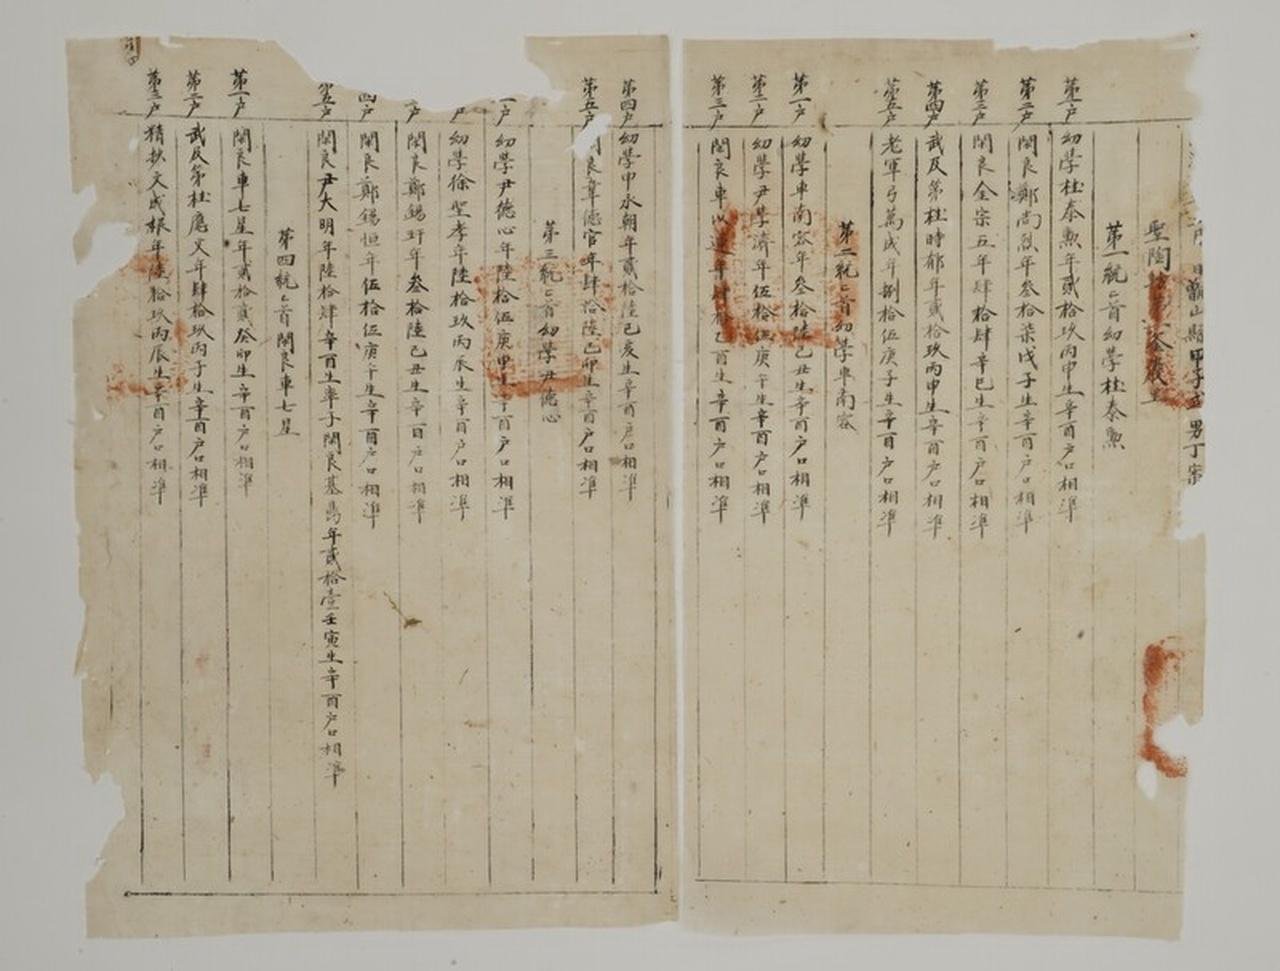 山縣甲子式男丁案
聖陶
第一統統首幼學杜泰勲
第一戶 幼學杜泰勲年貳拾玖丙申生辛酉戶口相準
第二戶 閑良鄭尚烈年叁拾柒戊子生辛酉戶口相準
第三戶 閑良金宗五年肆拾肆辛巳生辛酉戶口相準
第四戶 武及第杜時郁年貳拾玖丙申生辛酉戶口相準
第五戶 老軍弓萬成年捌拾伍庚子生辛酉戶口相準
第二統〻首幼學車南容
第一戶 幼學車南容年叁拾陸己丑生辛酉戶口相準
第二戶 幼學尹學濟年伍拾伍庚午生辛酉戶口相準
第三戶 閑良車 年肆拾 己酉生辛酉戶口相準
第四戶 幼學申永朝年貳拾陸己亥生辛酉戶口相準
第五戶 良韋德官年肆拾陸己卯生辛酉戶口相準
第三統〻首幼學尹德心
一戶 幼學尹德心年陸拾伍庚申生辛酉戶口相準
戶 幼學徐聖孝年陸拾玖丙辰生辛酉戶口相準
戶 閑良鄭錫玕年叁拾陸己丑生辛酉戶口相準
四戶 閑良鄭錫恒年伍拾伍庚午生辛酉戶口相準
第五戶 閑良尹大明年陸拾肆辛酉生率子閑良基禹年貳拾壹壬寅生辛酉戶口相準
第四統〻首閑良車七星
第一戶 閑良車七星年貳拾貳癸卯生辛酉戶口相準
第二戶 武及第杜應文年肆拾玖丙子生辛酉戶口相準
第三戶 精抄文成根年陸拾玖丙辰生辛酉戶口相準